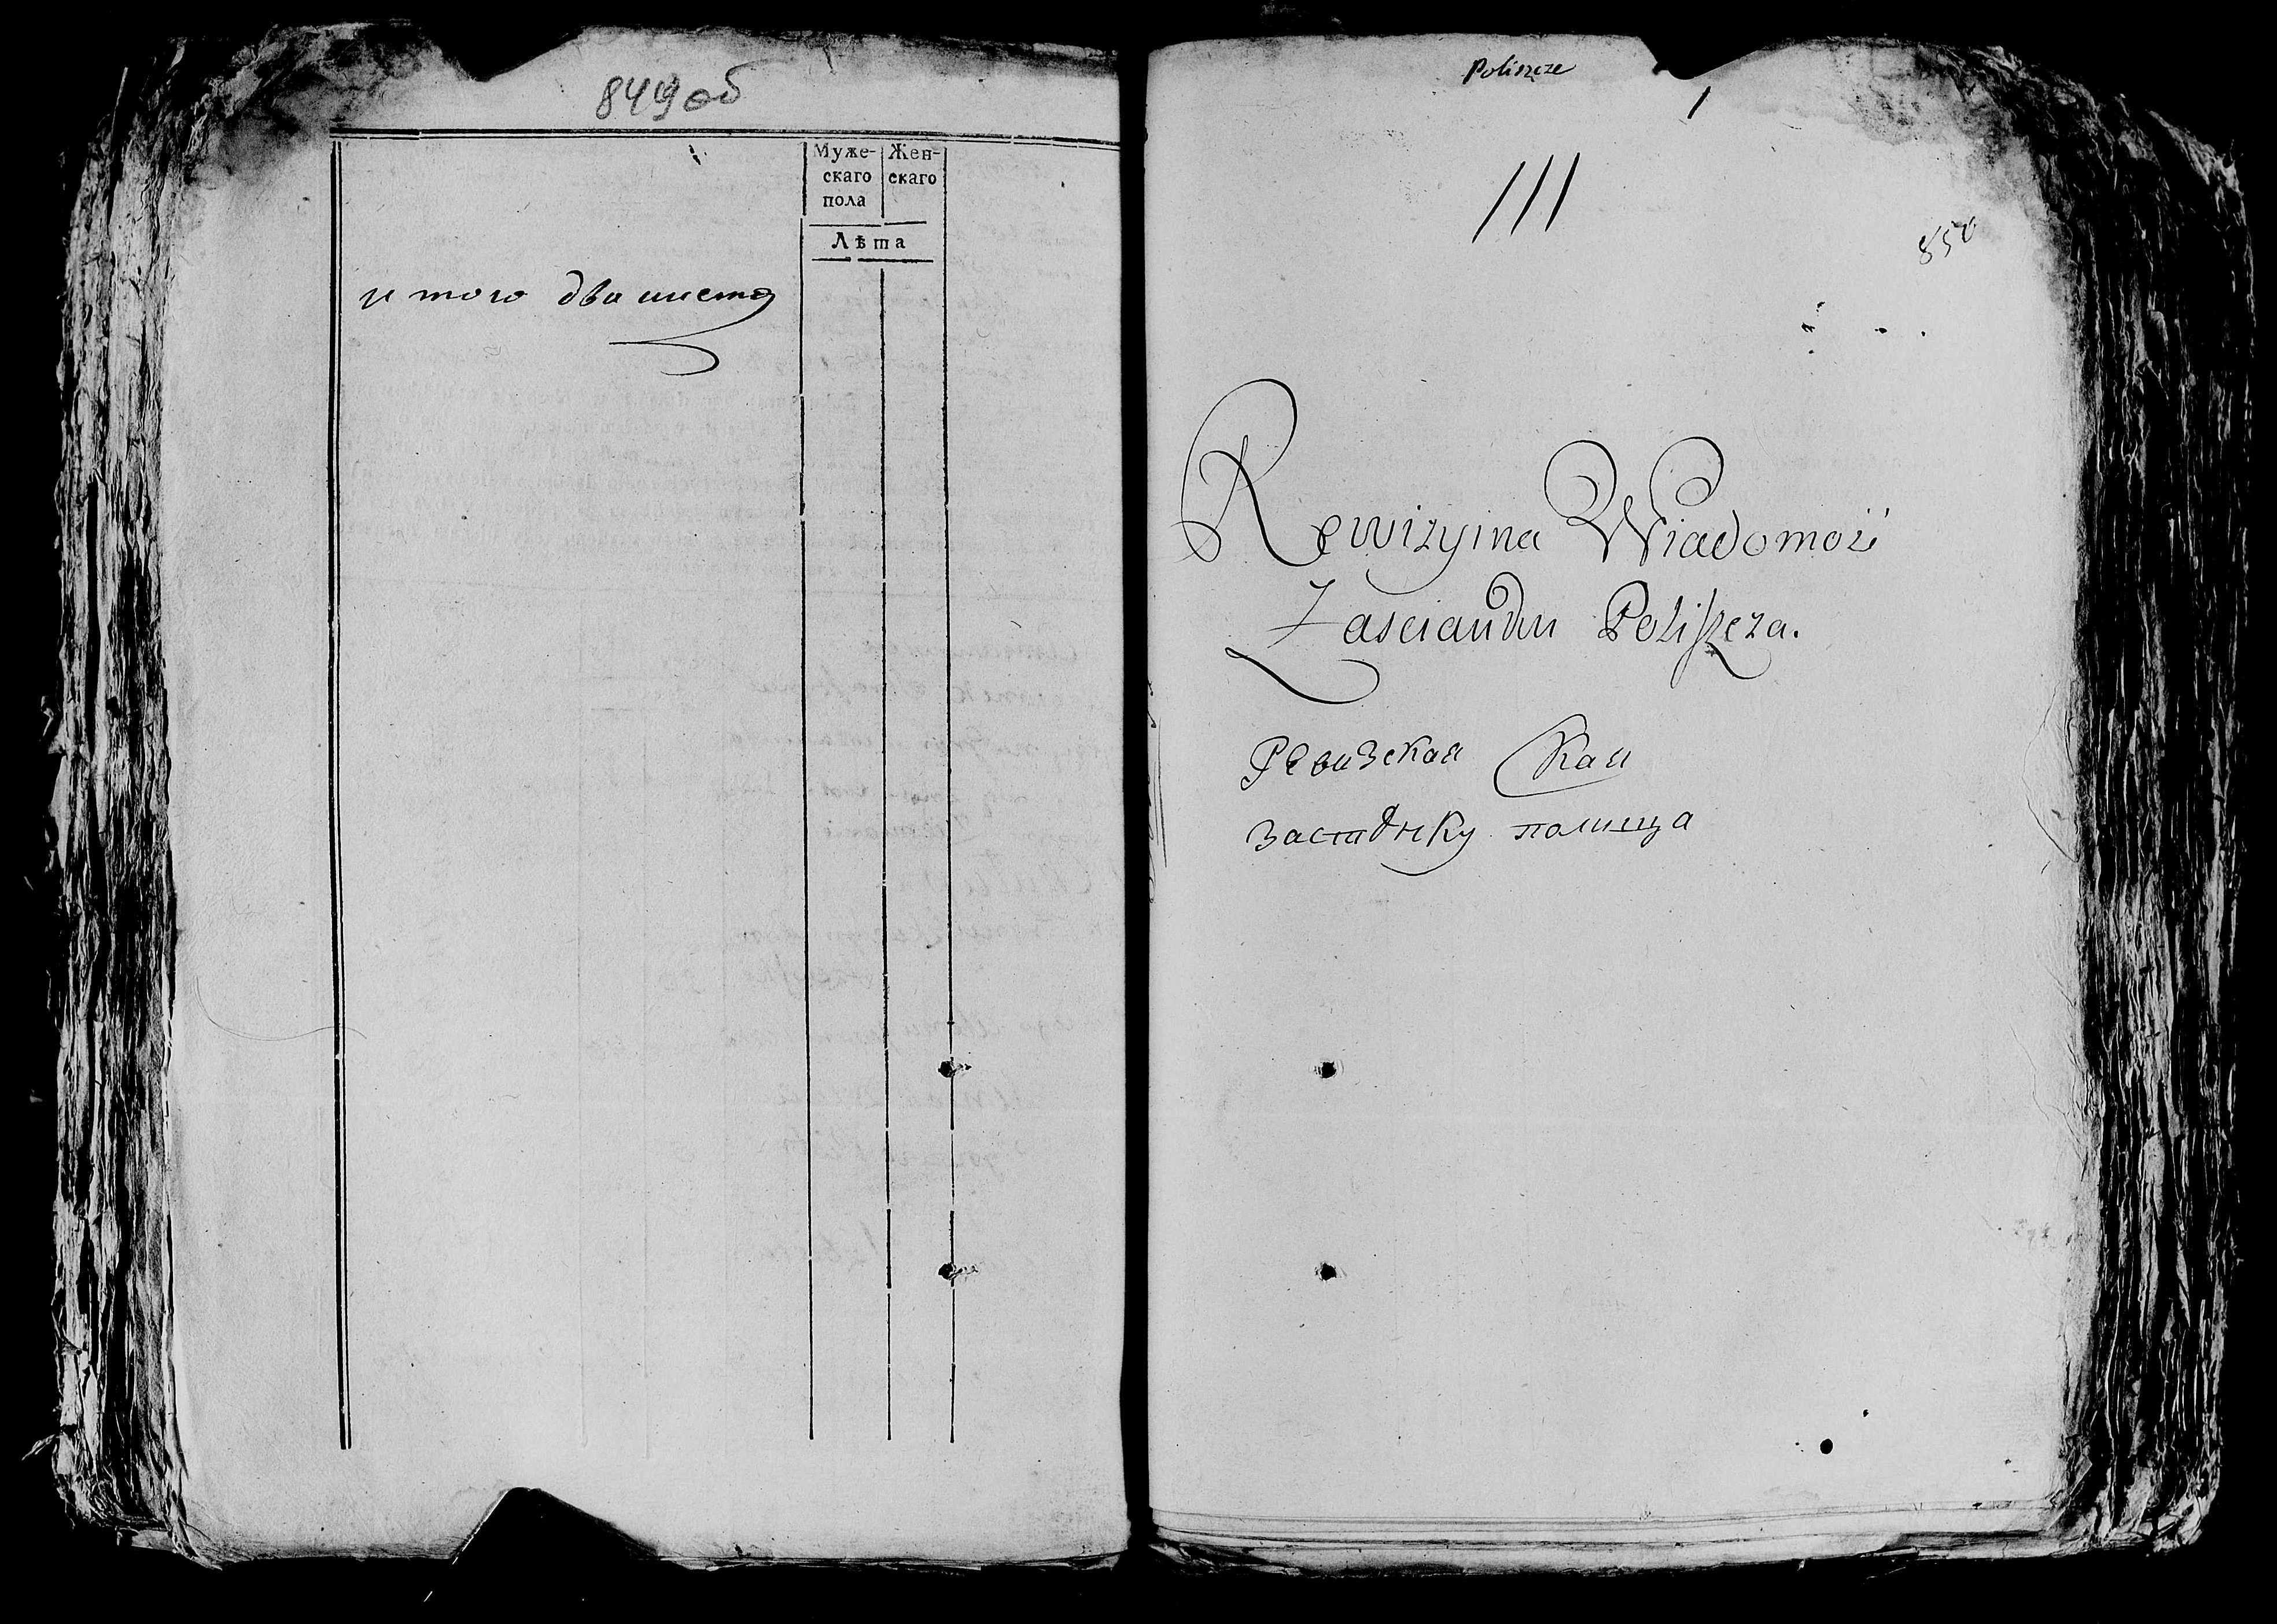 849об
Муже-
скаго
пола
Жен-
скаго
Лѣта
и того два листа
Poliszcze
1
III
850
Rewizyina Wiadomość
Zasciandku Poliszcza.
Ревизская Кая
Застиднку полища